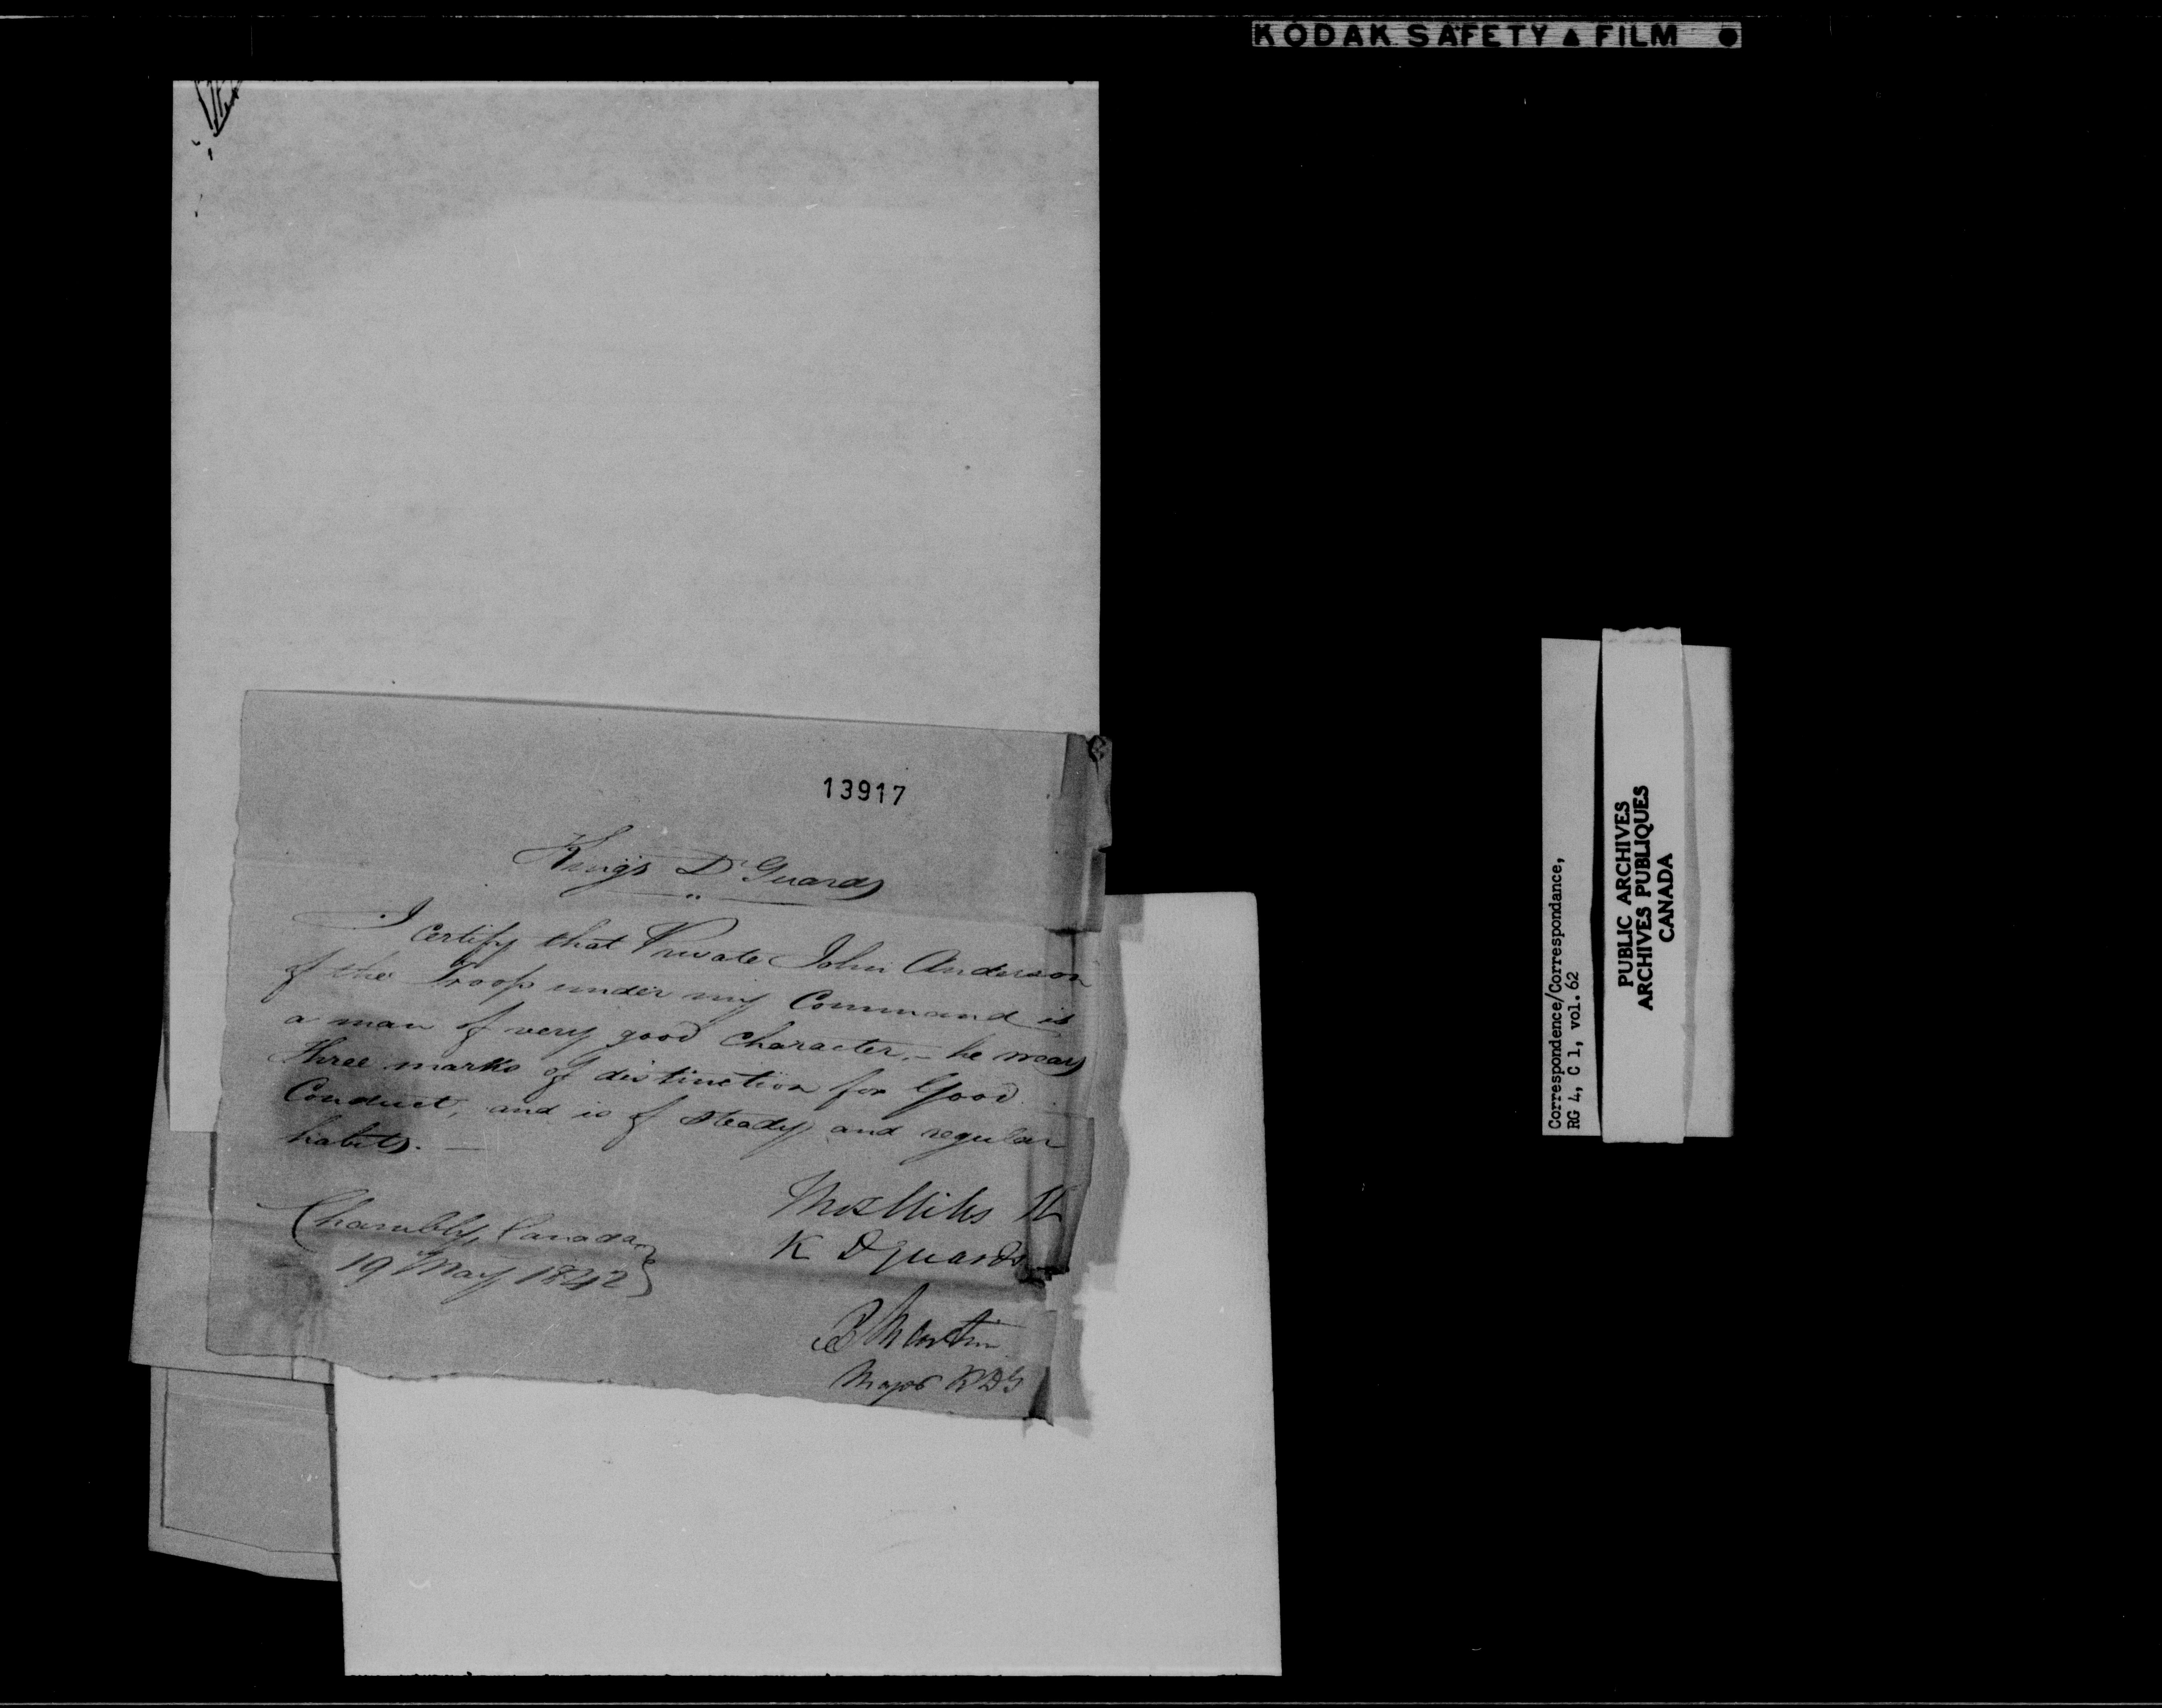 KODAK SAFETY ▲ FILM ●
13917
King's D Guards
I certify that Private John Anderson
of the Troop under my Command is
a man of very good Character, – he wears
three marks of distinction for Good
Conduct, and is of steady and regular
habits. —
Chambly, Canada
19 May 1842
K D Guards
B Martin
Major KDG
Correspondence/Correspondance,
RG 4, C 1, vol. 62
PUBLIC ARCHIVES
ARCHIVES PUBLIQUES
CANADA